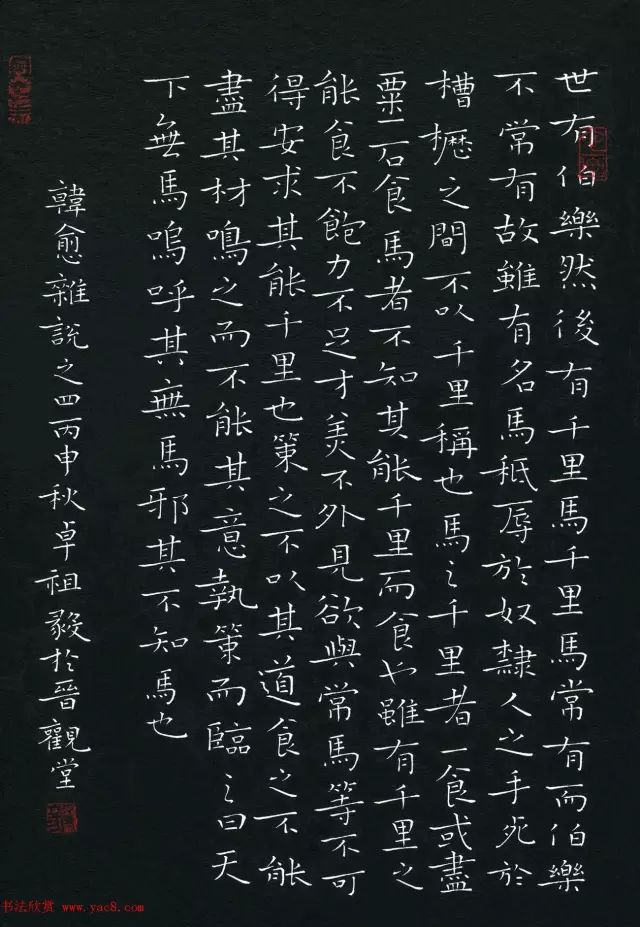 世有伯樂然後有千里馬千里馬常有而伯樂
不常有故雖有名馬秖辱於奴隸人之手死於
槽櫪之間不以千里稱也馬〻千里者一食或盡
粟一石食馬者不知其能千里而食也雖有千里之
能食不飽力不足才美不外見欲與常馬等不可
得安求其能千里也策之不以其道食之不能
盡其材鳴之而不能其意執策而臨〻曰天
下無馬嗚呼其無馬邪其不知馬也
韓愈雜說之四丙申秋卓祖毅於晉觀堂
书法欣赏 www.yac8.com